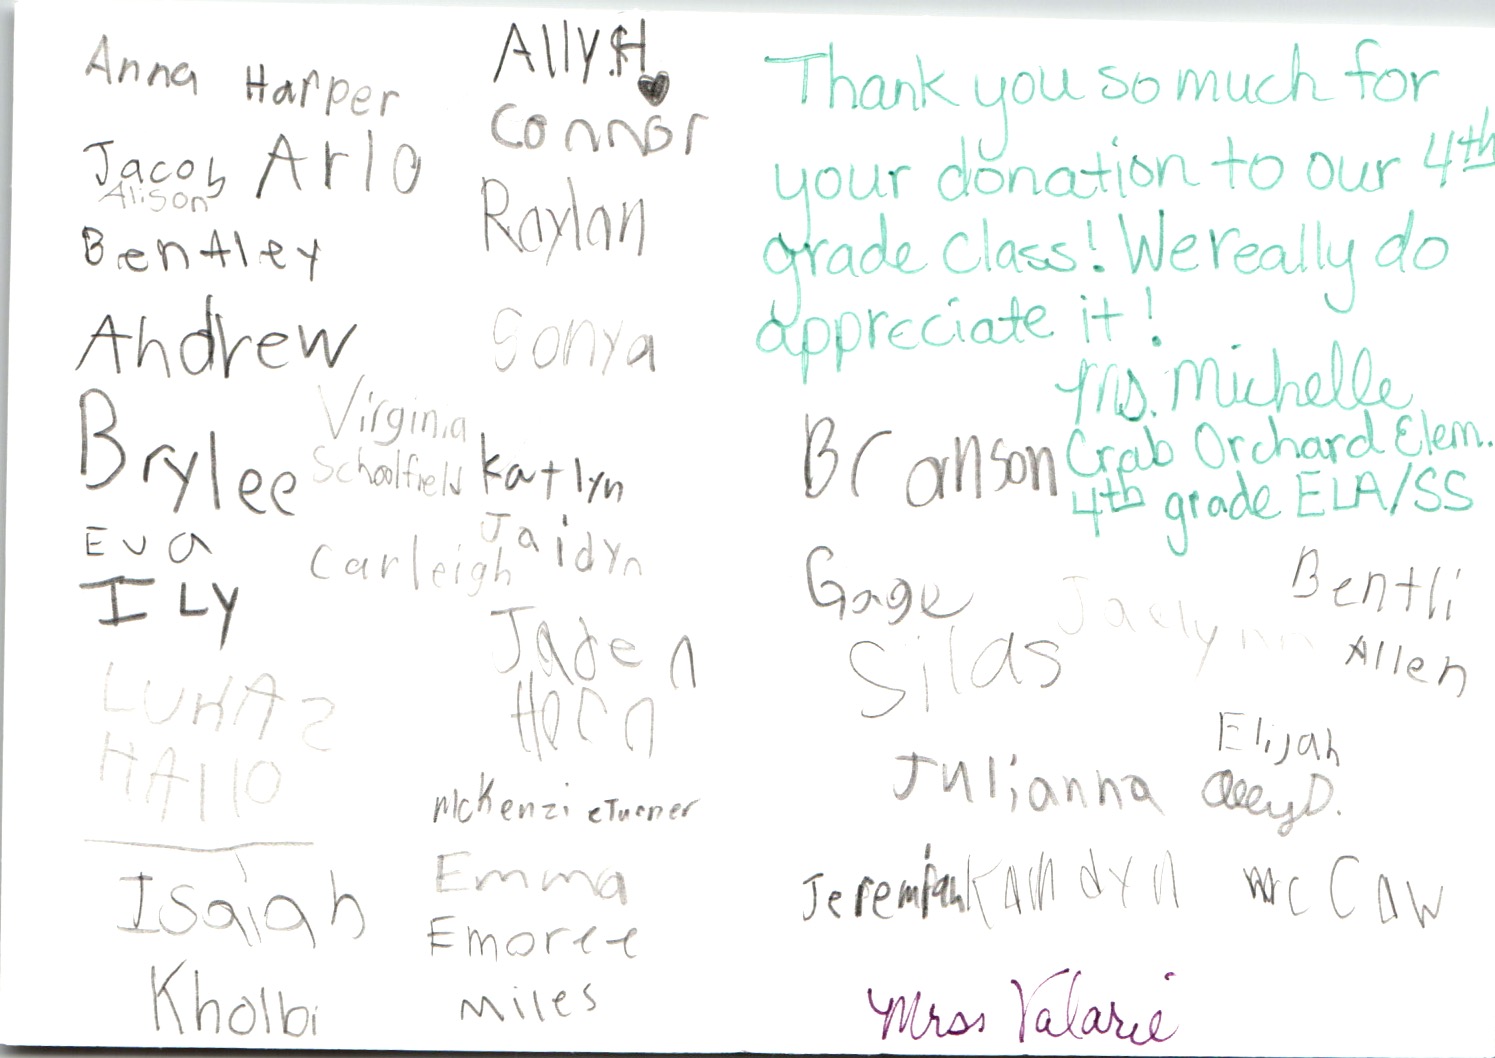 Anna Harper
Jacob Arlo
Alison
Bentley
Andrew
Brylee
Virginia
Schoolfield
Eva
Carleigh
ILY
LUKAS
HALLO
Isaiah
Kholbi
Ally.H
Connor
Raylan
Sonya
Katlyn
Jaidyn
Jaden
Hern
McKenzie Turner
Emma
Emoree
Miles
Thank you so much for
your donation to our 4th
grade class! We really do
appreciate it!
Ms. Michelle
Crab Orchard Elem.
4th grade ELA/SS
Branson
Gage
Jaclynn
Bentli
Allen
Silas
Elijah
Julianna
AlleyD.
Jeremiah Kamdyn McCaw
Mrss Valarie